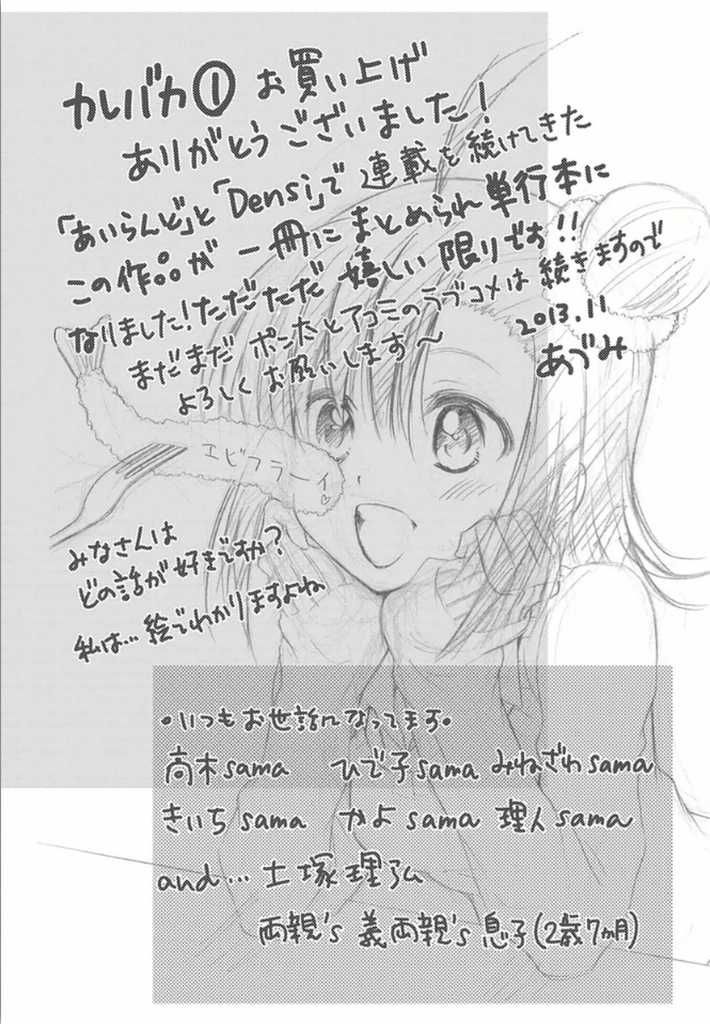 カレバカ① お買い上げ
ありがとうございました!
「あいらんど」と「Densi」で 連載を続けてきた
この作品が 一冊にまとめられ単行本に
なりました!ただただ 嬉しい 限りです!!
まだまだ ポン太とアコミのラブコメは 続きますので
よろしく お願いします〜
2013.11
あづみ
エビフラーイ♡
みなさんは
どの話が好きですか?
私は… 絵でわかりますよね
・いつもお世話になってます・
高木sama ひで子sama みねざわsama
きいちsama かよsama 理人sama
and… 土塚理弘
両親's 義両親's 息子(2歳7ヵ月)